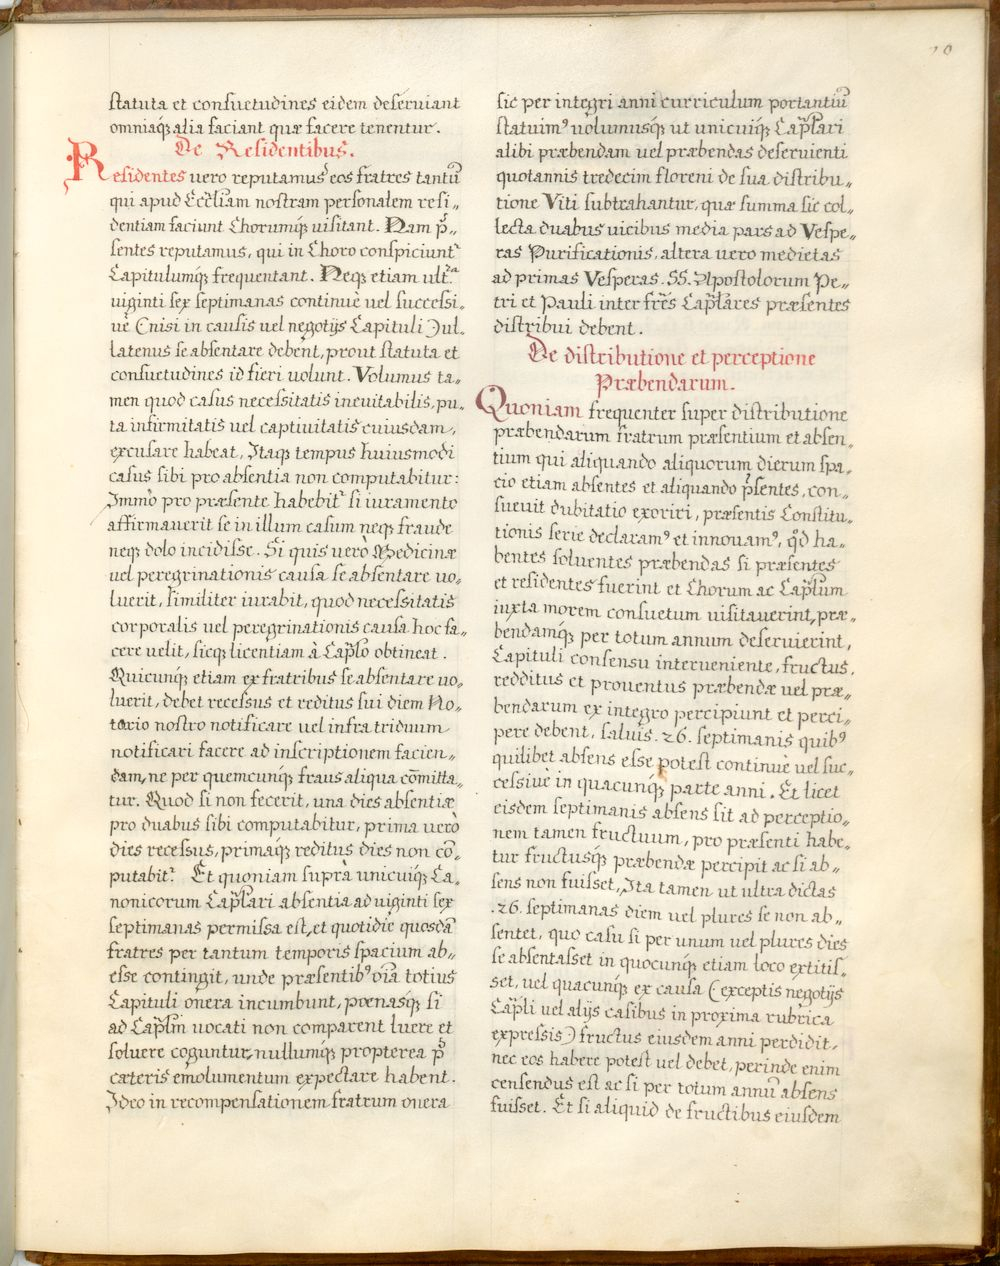 10
statuta et consuetudines eidem deseruiant
omniaqꝫ alia faciant quæ facere tenentur.
De Residentibus.
Residentes uero reputamus eos fratres tantū
qui apud Eccl̄iam nostram personalem resi„
dentiam faciunt Chorumqꝫ uisitant. Nam p̄„
sentes reputamus, qui in Choro conspiciunt᷑
Capitulumqꝫ frequentant. Neqꝫ etiam ult.ª
uiginti sex septimanas continuè uel successi„
uè (nisi in causis uel negotijs Capituli) ul„
latenus se absentare debent, prout statuta et
consuetudines id fieri uolunt. Volumus ta„
men quod casus necessitatis ineuitabilis, pu„
ta infirmitatis uel captiuitatis cuiusdam,
excusare habeat, Itaqꝫ tempus huiusmodi
casus sibi pro absentia non computabitur:
Immo pro præsente habebit᷑ si iuramento
affirmauerit se in illum casum neqꝫ fraude
neqꝫ dolo incidisse. Si quis uerò Medicinæ
uel peregrinationis causa se absentare uo„
luerit, similiter iurabit, quod necessitatis
corporalis uel peregrinationis causa hoc fa„
cere uelit, sicqꝫ licentiam à Cap̄lo obtineat.
Quicunqꝫ etiam ex fratribus se absentare uo„
luerit, debet recessus et reditus sui diem No„
tario nostro notificare uel infra triduum
notificari facere ad inscriptionem facien„
dam, ne per quemcunqꝫ fraus aliqua com̄itta„
tur. Quod si non fecerit, una dies absentiæ
pro duabus sibi computabitur, prima uerò
dies recessus, primaqꝫ reditus dies non cō„
putabit᷑. Et quoniam suprà unicuiqꝫ Ca„
nonicorum Cap̄lari absentia ad uiginti sex
septimanas permissa est, et quotidie quosdā
fratres per tantum temporis spacium ab„
esse contingit, unde præsentibꝰ oīa totius
Capituli onera incumbunt, poenasqꝫ si
ad Cap̄lm uocati non comparent luere et
soluere coguntur, nullumqꝫ propterea p̄
cæteris emolumentum expectare habent.
Ideo in recompensationem fratrum onera
sic per integri anni curriculum portantiū
statuimꝰ uolumusqꝫ ut unicuiqꝫ Cap̄lari
alibi præbendam uel præbendas deseruienti
quotannis tredecim floreni de sua distribu„
tione Viti subtrahantur, quæ summa sic col„
lecta duabus uicibus media pars ad Vespe„
ras Purificationis, altera uero medietas
ad primas Vesperas. SS. Apostolorum Pe„
tri et Pauli inter fr̄es Cap̄lares præsentes
distribui debent.
De distributione et perceptione
Præbendarum.
Quoniam frequenter super distributione
præbendarum fratrum præsentium et absen„
tium qui aliquando aliquorum dierum spa„
cio etiam absentes et aliquando p̄sentes, con„
sueuit dubitatio exoriri, præsentis Constitu„
tionis serie declaramꝰ et innouamꝰ, qd̄ ha„
bentes soluentes præbendas si præsentes
et residentes fuerint et Chorum ac Cap̄lum
iuxta morem consuetum uisitauerint, præ„
bendamqꝫ per totum annum deseruierint,
Capituli consensu interueniente, fructus,
redditus et prouentus præbendæ uel præ„
bendarum ex integro percipiunt et perci„
pere debent, saluis .26. septimanis quibꝰ
quilibet absens esse potest continuè uel suc„
cessiuè in quacunqꝫ parte anni. Et licet
eisdem septimanis absens sit ad perceptio„
nem tamen fructuum, pro præsenti habe„
tur fructusqꝫ præbendæ percipit ac si ab„
sens non fuisset, Ita tamen ut ultra dictas
.26. septimanas diem uel plures se non ab„
sentet, quo casu si per unum uel plures dies
se absentasset in quocunqꝫ etiam loco extitis„
set, uel quacunqꝫ ex causa (exceptis negotijs
Cap̄li uel alijs casibus in proxima rubrica
expressis) fructus eiusdem anni perdidit,
nec eos habere potest uel debet, perinde enim
censendus est ac si per totum annū absens
fuisset. Et si aliquid de fructibus eiusdem